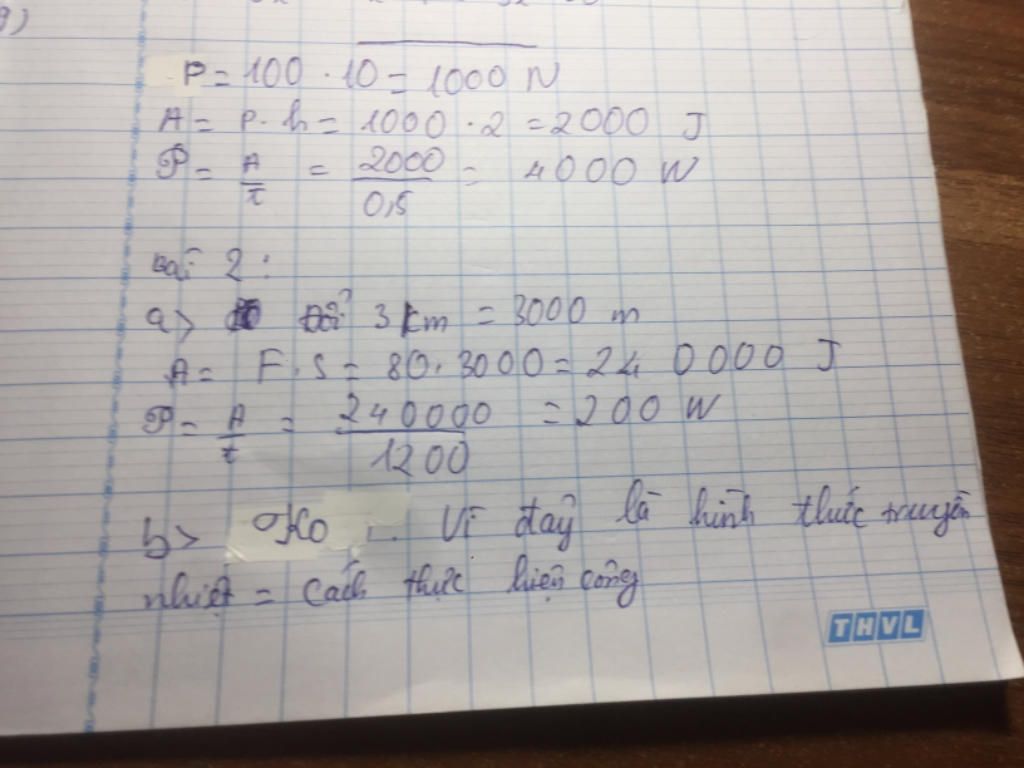 9)
P = 100 . 10 = 1000 N
A = P . h = 1000 . 2 = 2000 J
P = A/t = 2000/0,5 = 4000 W
Bài 2 :
a> Đổi 3 km = 3000 m
A = F . S = 80 . 3000 = 240000 J
P = A/t = 240000/1200 = 200 W
b> Ko . Vì đây là hình thức truyền
nhiệt = cách thực hiện công
THVL